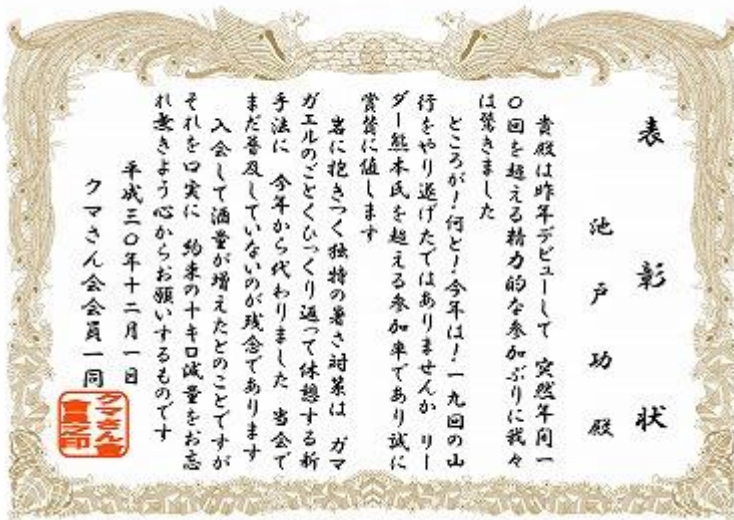 表彰状
池戸功殿
貴殿は昨年デビューして 突然年間一
〇回を超える精力的な参加ぶりに我々
は驚きました
ところが!何と!今年は!一九回の山
行をやり遂げたではありませんか リー
ダー熊本氏を超える参加率であり誠に
賞賛に値します
岩に抱きつく独特の暑さ対策は ガマ
ガエルのごとくひっくり返って休憩する新
手法に 今年から代わりました 当会で
まだ普及していないのが残念であります
入会して酒量が増えたとのことですが
それを口実に 約束の十キロ減量をお忘
れ無きよう心からお願いするものです
平成三〇年十二月一日
クマさん会会員一同
クマさん會
會員之印